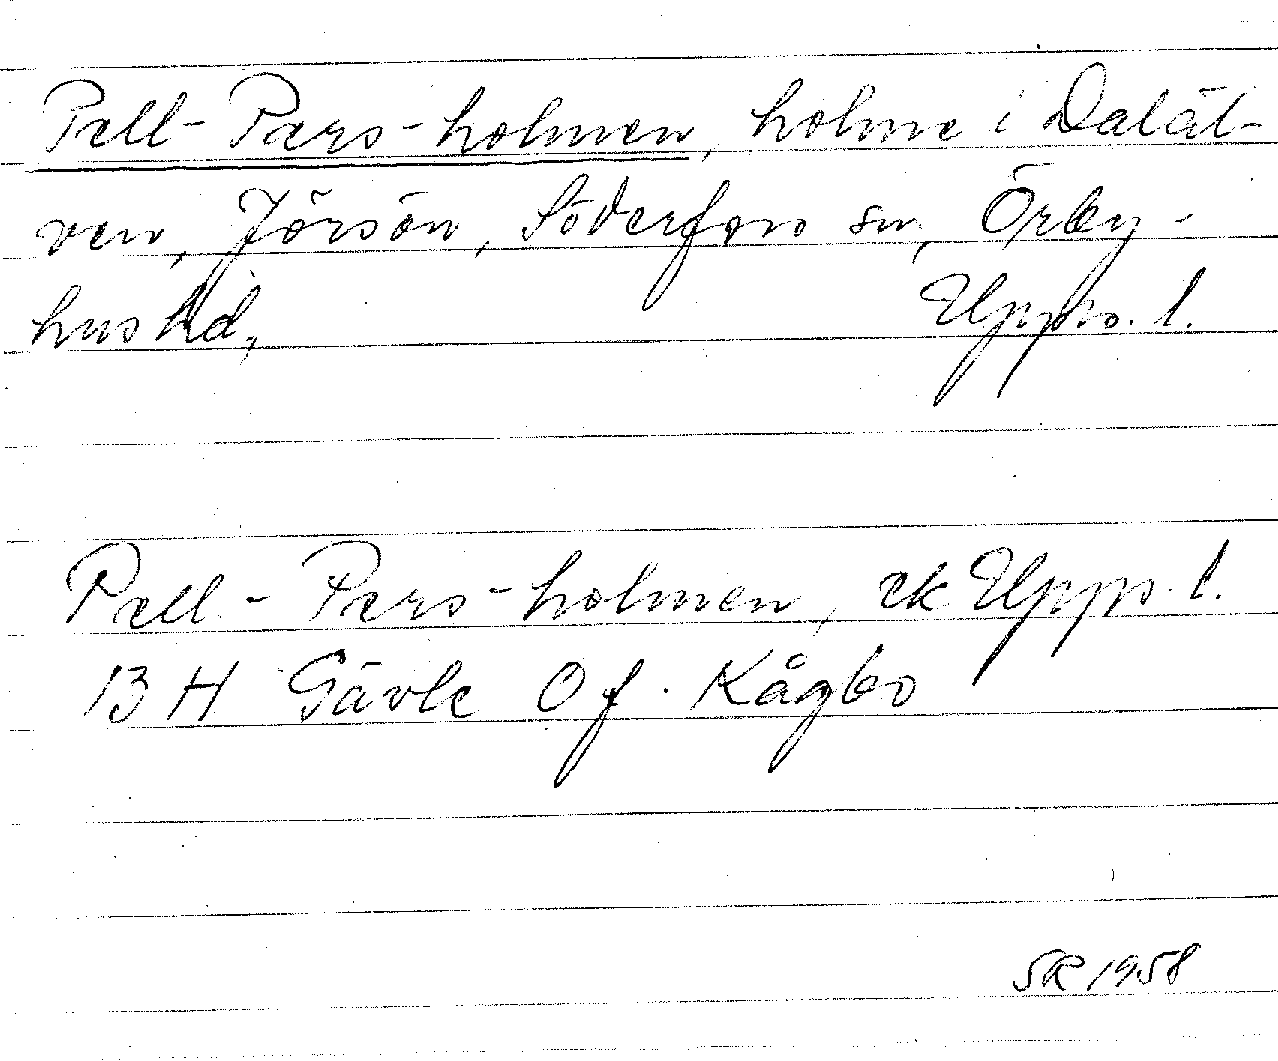 Pell-Pers-holmen, holme i Daläl-
ven, Jörsön, Söderfors sn, Örby-
hus hd, Upps. l.
Pell-Pers-holmen, ek Upps. l.
13 H Gävle Of. Kågbo
SR 1958